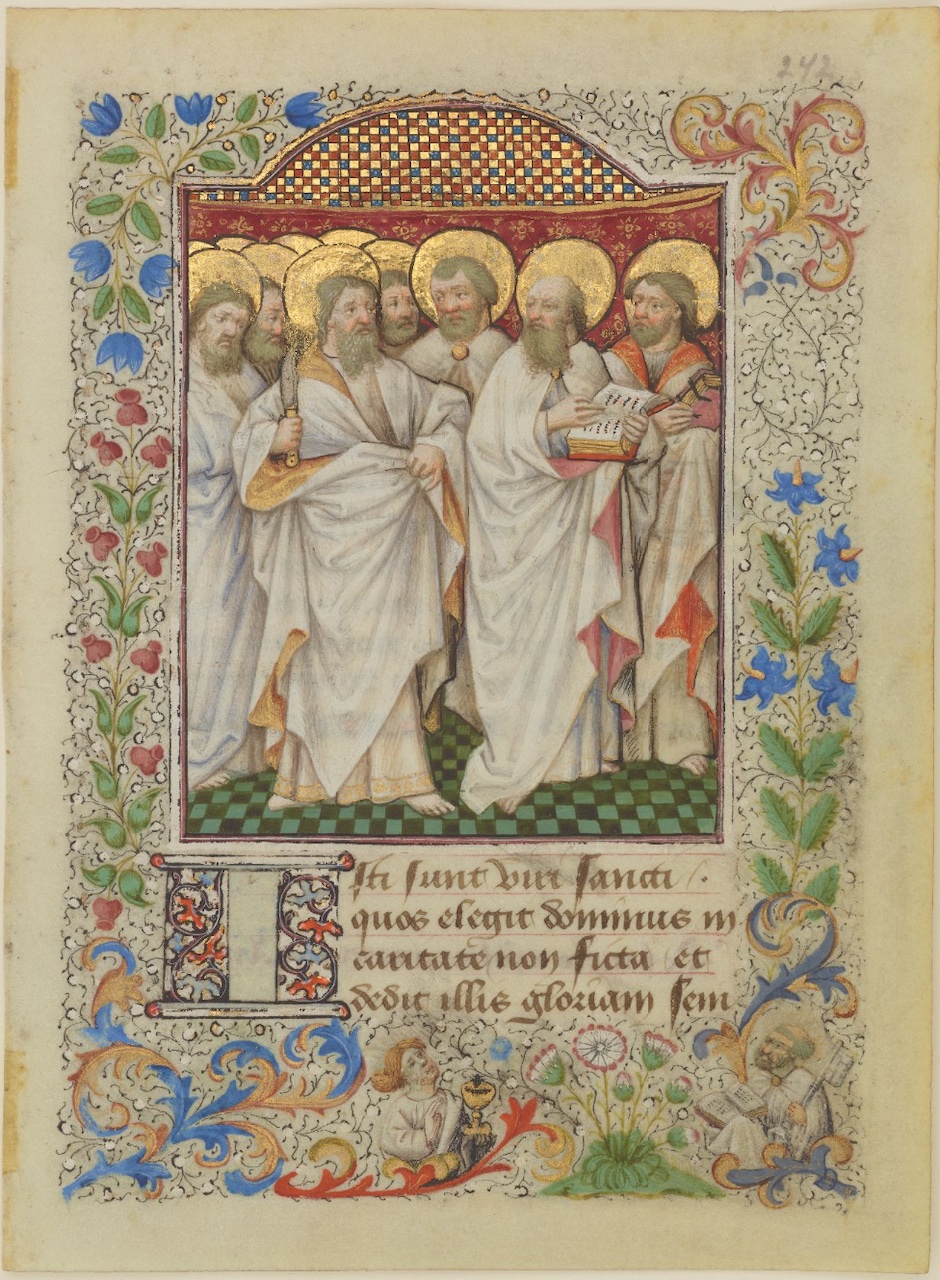 242
Isti sunt viri sancti .
quos elegit dominus in
caritate non ficta et
dedit illis gloriam sem